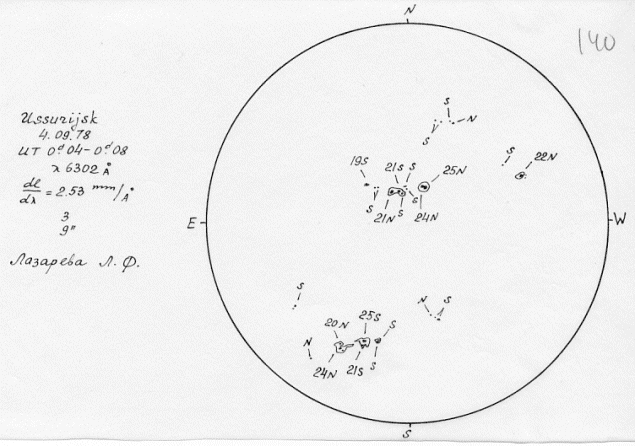 N
140
Ussurijsk
4.09.78
UT 0ᵈ04-0ᵈ08
λ 6302 Å
dl/dλ = 2.53 mm/Å
3
9"
Лазарева Л. Ф.
S
N
S
S
22N
19S
21S
S
25N
S
21N
S
S
24N
E
W
S
N
S
20N
25S
S
N
24N
21S
S
S